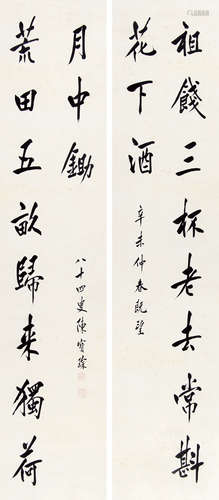 祖餞三杯老去常斟
花下酒
辛未仲春既望
荒田五畝歸来獨荷
月中鋤
八十四叟陳寶琛